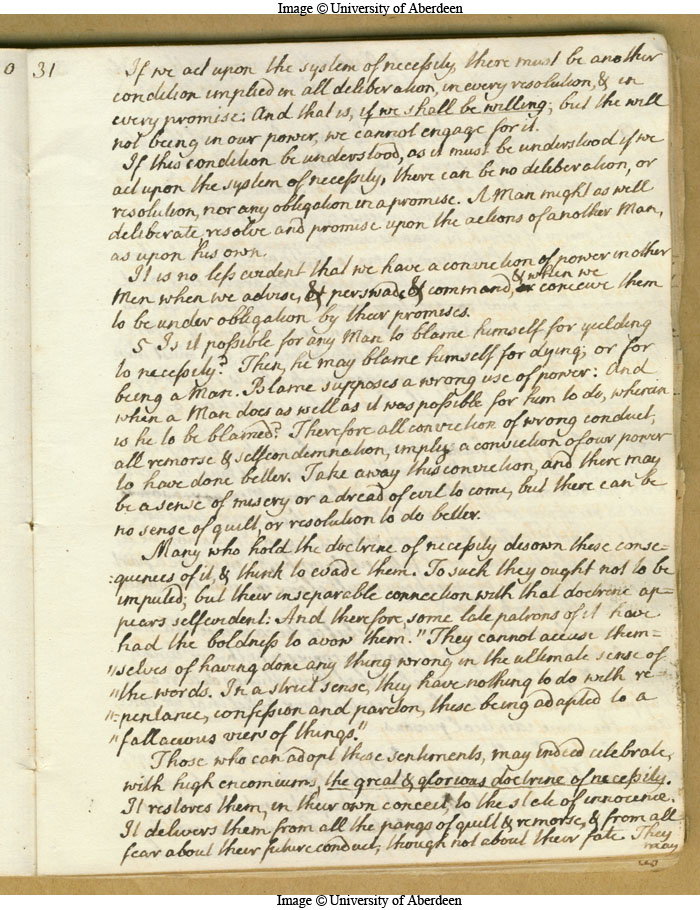 Image © University of Aberdeen
0 31
If we act upon the system of necessity, there must be another
condition implied in all deliberation, in every resolution, & in
every promise: And that is, if we shall be willing; but the will
not being in our power, we cannot engage for it.
If this condition be understood, as it must be understood if we
act upon the system of necessity, there can be no deliberation, or
resolution, nor any obligation in a promise. A Man might as well
deliberate resolve and promise upon the actions of another Man,
as upon his own.
It is no less evident that we have a conviction of power in other
& when we
Men when we advise, & perswade & command, or conceive them
to be under obligation by their promises.
5 Is it possible for any Man to blame himself for yielding
to necessity? Then, he may blame himself for dying; or for
being a Man. Blame supposes a wrong use of power: And
when a Man does as well as it was possible for him to do, wherein
is he to be blamed? Therefore all conviction of wrong conduct,
all remorse & selfcondemnation, imply a conviction of our power
to have done better. Take away this conviction, and there may
be a sense of misery or a dread of evil to come, but there can be
no sense of guilt, or resolution to do better.
Many who hold the doctrine of necessity disown these conse=
:quences of it, & think to evade them. To such they ought not to be
imputed; but their inseparable connection with that doctrine ap=
pears selfevident: And therefore some late patrons of it have
had the boldness to avow them. "They cannot accuse them=
"selves of having done any thing wrong in the ultimate sense of
"the words. In a strict sense, they have nothing to do with re=
"=pentance, confession and pardon, these being adapted to a
"fallacious view of things."
Those who can adopt these sentiments, may indeed celebrate,
with high encomiums, the great & glorious doctrine of necessity.
It restores them, in their own conceit, to the state of innocence.
It delivers them from all the pangs of guilt & remorse, & from all
fear about their future conduct, though not about their fate. They
may
Image © University of Aberdeen